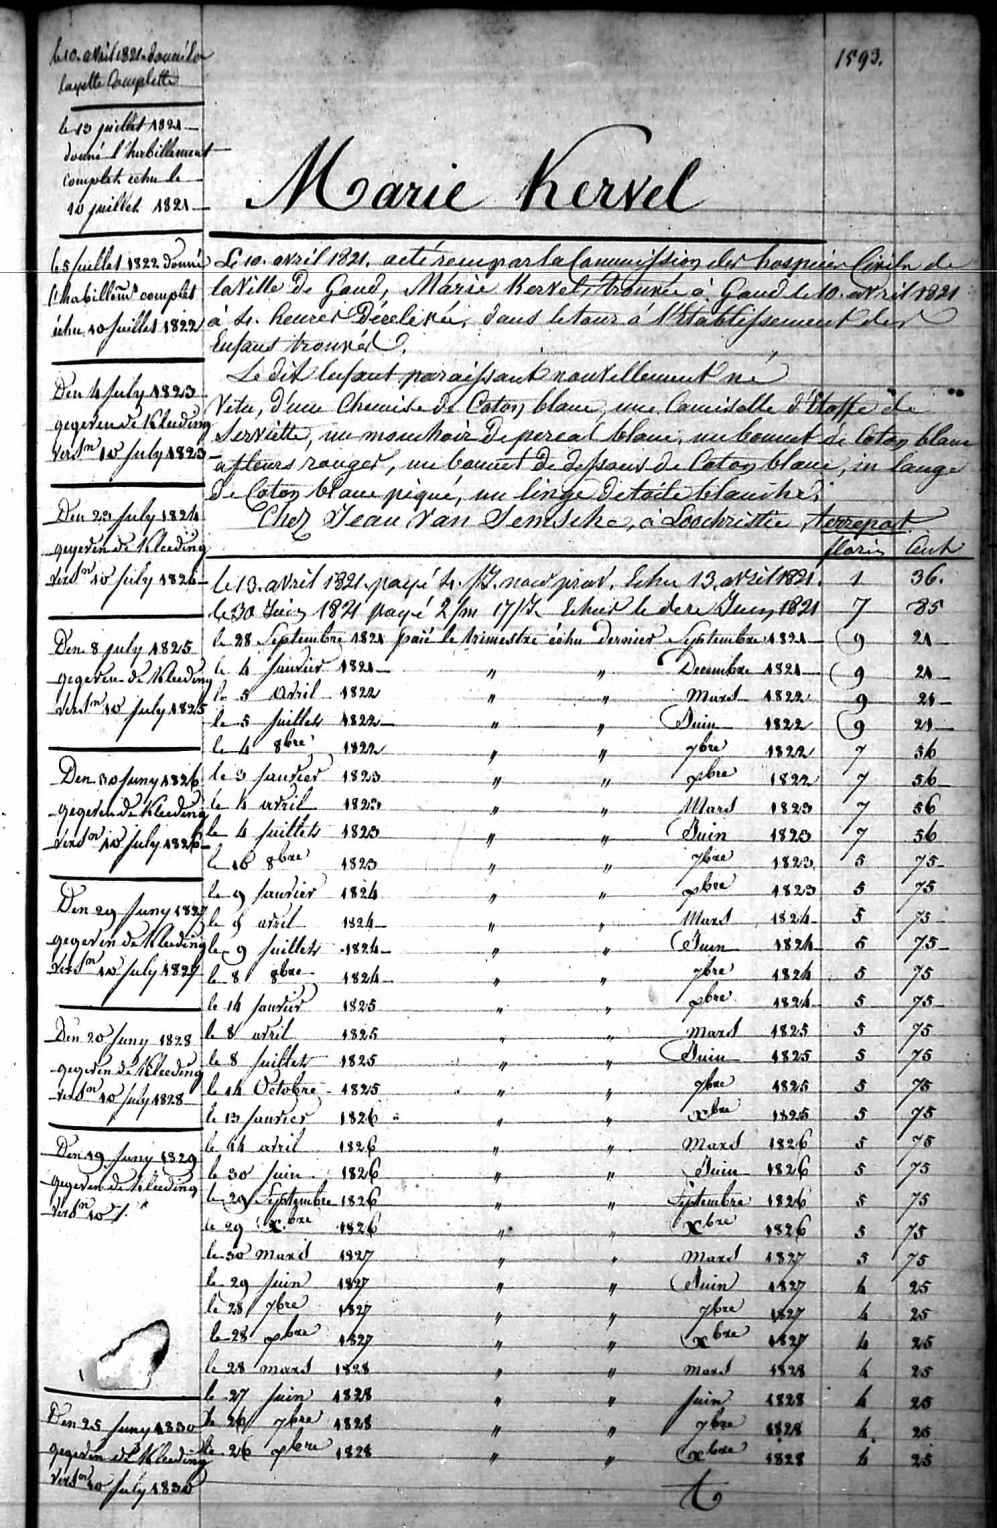 1593.
Marie Kervel
le 10. avril 1821. donné la
layette Complette
le 13 juillet 1821
donné l'habillement
complet échu le
10 juillet 1821
le 5 Juillet 1822 donné
l'habillemt complet
échu 10 Juillet 1822
Den 4 July 1823
gegeven de Kleeding
Versn 10 July 1823
Den 23 July 1824
gegeven de Kleeding
Versn 10 July 1824
Den 8 july 1825
gegeven de Kleeding
Versn 10 july 1825
Den 30 Juny 1826
gegeven de Kleeding
Versn 10 July 1826
Den 29 Juny 1827
gegeven de Kleeding
Versn 10 July 1827
Den 20 Juny 1828
gegeven de Kleeding
versn 10 july 1828
Den 19 Juny 1829
gegeven de Kleeding
Versn 10 7.
Den 25 Juny 1830
gegeven de Kleeding
Versn 10 July 1830
Le 10. avril 1821. a été reçu par la Commission des hospices Civils de
la Ville De Gand, Marie Kervel, trouvée à Gand le 10. avril 1821
à 4. heures De relevée, dans le tour à l'Etablissement des
Enfans trouvés.
Le dit Enfant paraissant nouvellement né
Vetu, d'une Chemise de Coton blanc, une Camisolle d'Etoffe de
Serviette, un mouchoir De percal blanc, un bonnet de Coton blanc
a fleurs rouges, un bonnet De dessous de Coton blanc, in lange
De Coton blanc piqué, un linge De toile blanche.
Chez Jean Van , à Loochristie
florin Cent
le 13. avril 1821. payé Echu 13. avril 1821. 1 36.
le 30 Juin 1821 payé 2 Juin 1821 7 85
le 28 Septembre 1821 paié le trimestre échu dernier Septembre 1821 9 21
le 4 Janvier 1821 " " Decembre 1821 9 21
le 5 Avril 1822 " " Mars 1822 9 21
le 5 Juillet 1822 " " Juin 1822 9 21
le 4 8bre 1822 " " 7bre 1822 7 56
le 3 Janvier 1823 " " xbre 1822 7 56
le 4 avril 1823 " " Mars 1823 7 56
le 4 Juillet 1823 " " Juin 1823 7 56
le 16 8bre 1823 " " 7bre 1823 5 75
le 9 Janvier 1824 " " xbre 1823 5 75
le 9 avril 1824 " " Mars 1824 5 75
le 9 Juillet 1824 " " Juin 1824 5 75
le 8 8bre 1824 " " 7bre 1824 5 75
le 14 Janvier 1825 " " xbre 1824 5 75
le 8 avril 1825 " " Mars 1825 5 75
le 8 Juillet 1825 " " Juin 1825 5 75
le 14 Octobre 1825 " " 7bre 1825 5 75
le 13 Janvier 1826 " " xbre 1825 5 75
le 14 avril 1826 " " Mars 1826 5 75
le 30 Juin 1826 " " Juin 1826 5 75
le 29 Septembre 1826 " " Septembre 1826 5 75
le 29 xbre 1826 " " xbre 1826 5 75
le 30 mars 1827 " " Mars 1827 5 75
le 29 Juin 1827 " " Juin 1827 4 25
le 28 7bre 1827 " " 7bre 1827 4 25
le 28 xbre 1827 " " xbre 1827 4 25
le 28 mars 1828 " " mars 1828 4 25
le 27 Juin 1828 " " Juin 1828 4 25
le 26 7bre 1828 " " 7bre 1828 4 25
le 26 xbre 1828 " " xbre 1828 4 25